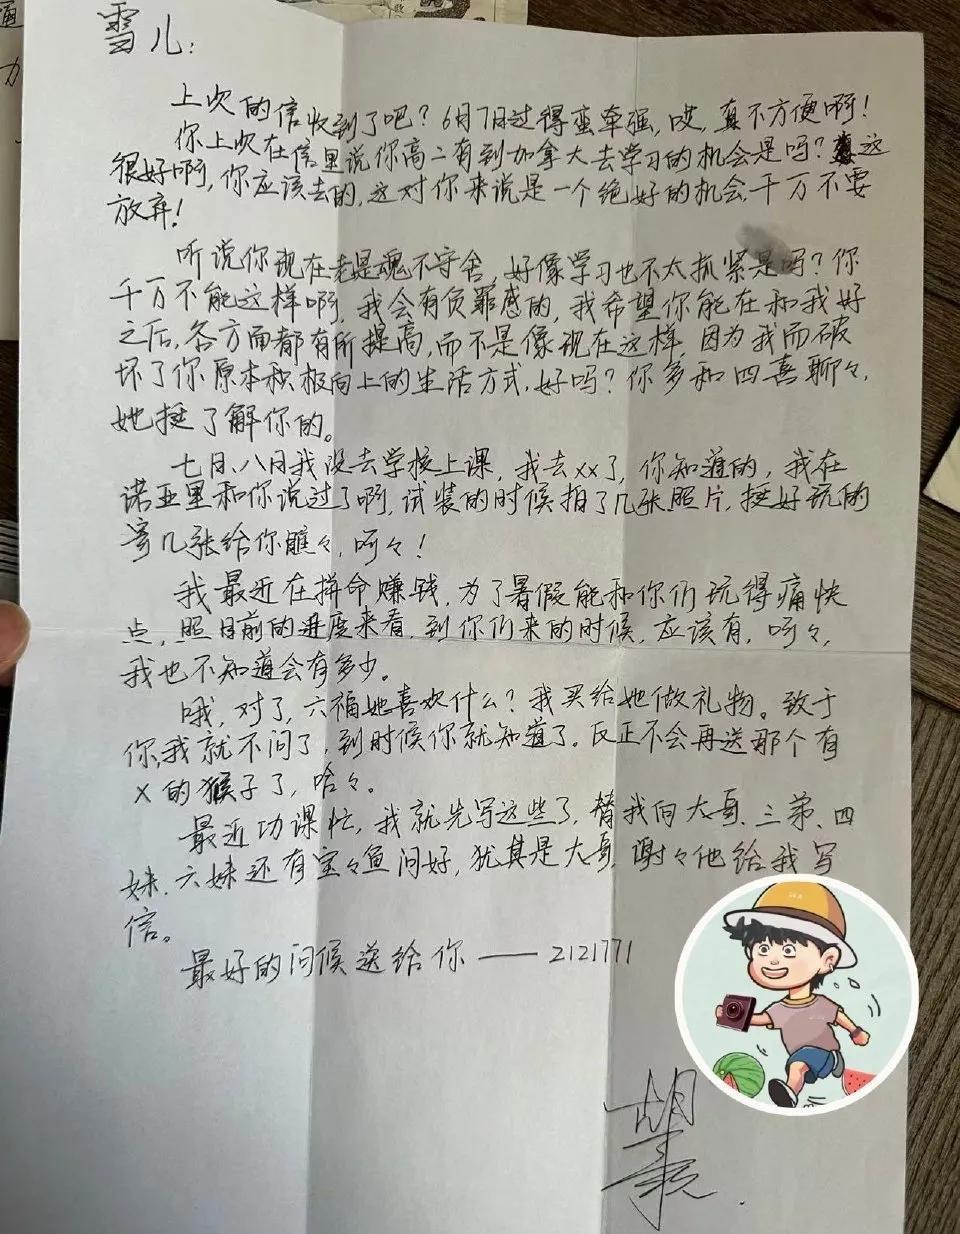 雪儿:
上次的信收到了吧?6月7日过得蛮牵强,哎,真不方便啊!
你上次在信里说你高二有到加拿大去学习的机会是吗?这
很好啊,你应该去的,这对你来说是一个绝好的机会,千万不要
放弃!
听说你现在老是魂不守舍,好像学习也不太抓紧是吗?你
千万不能这样啊,我会有负罪感的,我希望你能在和我好
之后,各方面都有所提高,而不是像现在这样,因为我而破
坏了你原本积极向上的生活方式,好吗?你多和四喜聊々,
她挺了解你的。
七月、八月我没去学校上课,我去xx了,你知道的,我在
诺亚里和你说过了啊,试装的时候拍了几张照片,挺好玩的
寄几张给你瞧々,呵々!
我最近在拼命赚钱,为了暑假能和你们玩得痛快
点,照目前的进度来看,到你们来的时候,应该有,呵々,
我也不知道会有多少。
哦,对了,六福她喜欢什么?我买给她做礼物。致于
你,我就不问了,到时候你就知道了。反正不会再送那个有
X的猴子了,哈々。
最近功课忙,我就先写这些了,替我向大哥、三弟、四
妹、六妹还有宝々鱼问好,犹其是大哥,谢々他给我写
信。
最好的问候送给你——2121771
胡